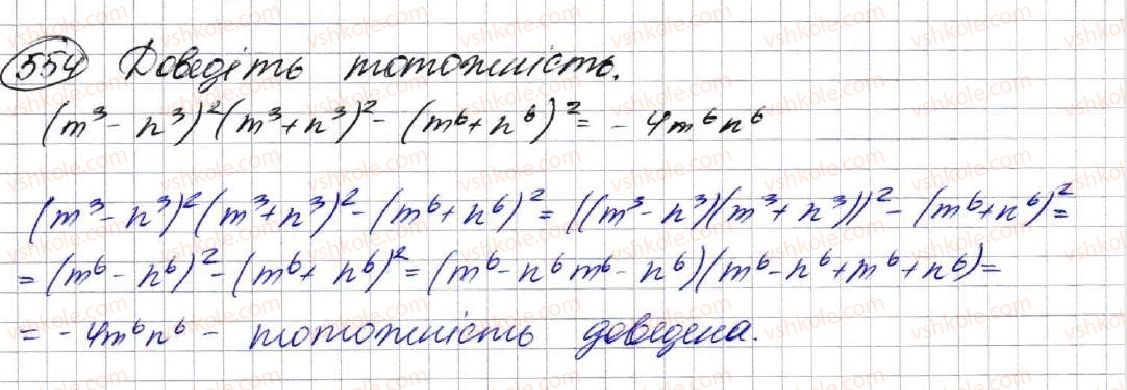 554 Доведіть тотожність.
(m³ - n³)²(m³+n³)² - (m⁶+n⁶)² = -4m⁶n⁶
(m³ - n³)²(m³+n³)² - (m⁶+n⁶)² = ((m³ - n³)(m³ + n³))² - (m⁶+n⁶)² =
= (m⁶ - n⁶)² - (m⁶ + n⁶)² = (m⁶ - n⁶ m⁶ - n⁶)(m⁶ - n⁶ + m⁶ + n⁶) =
= -4m⁶n⁶ - тотожність доведена.